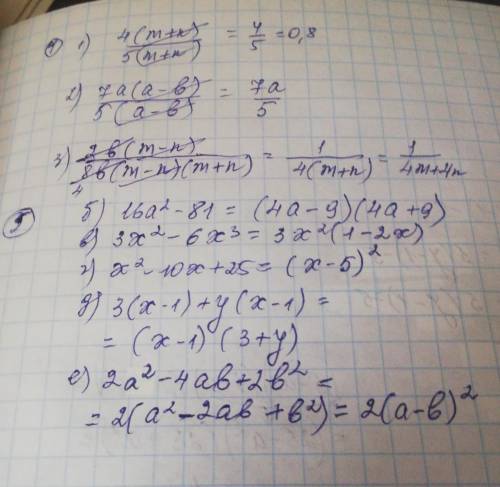 ④ 1) 4(m+n) / 5(m+n) = 4/5 = 0,8
2) 7a(a-в) / 5(a-в) = 7a/5
3) 2в(m-n) / 8в(m-n)(m+n) 4 = 1 / 4(m+n) = 1 / 4m+4n
⑤ б) 16a² - 81 = (4a-9)(4a+9)
в) 3x² - 6x³ = 3x²(1-2x)
г) x² - 10x + 25 = (x-5)²
д) 3(x-1) + y(x-1) =
= (x-1) (3+y)
е) 2a² - 4aв + 2в² =
= 2(a² - 2aв + в²) = 2(a-в)²